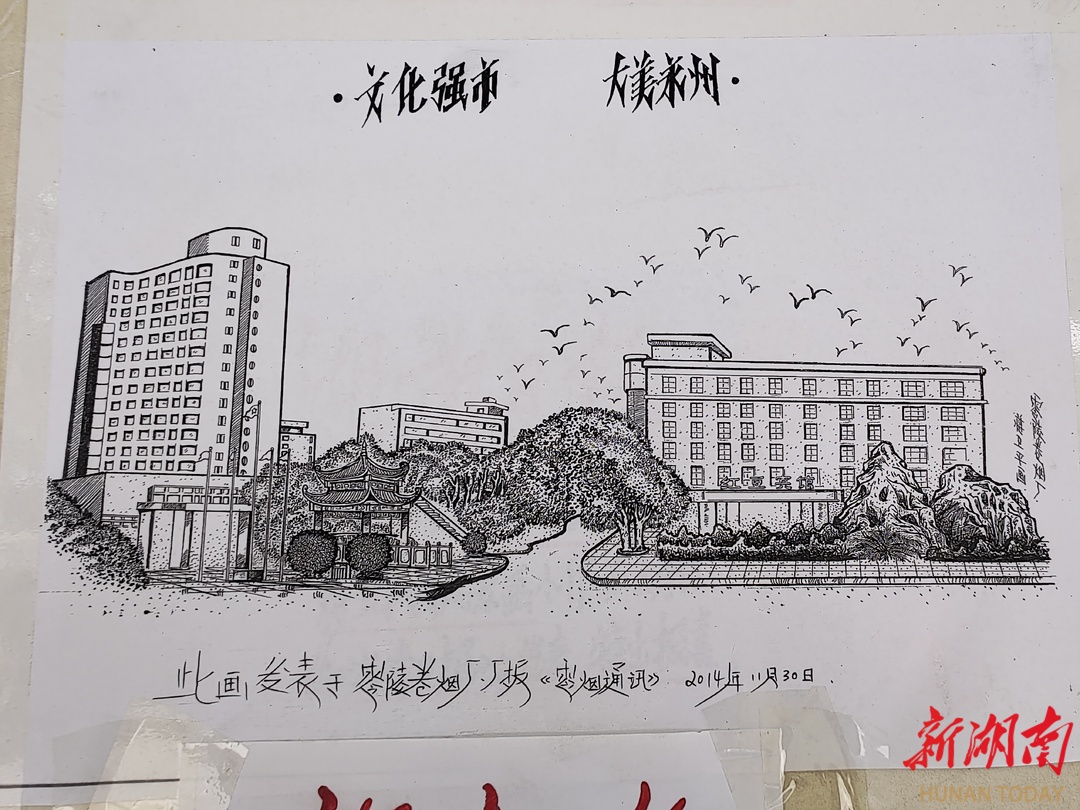 ·文化强市 大美永州·
红豆宾馆
此画发表于零陵卷烟厂厂报《零烟通讯》 2014年11月30日.
新湖南
HUNAN TODAY